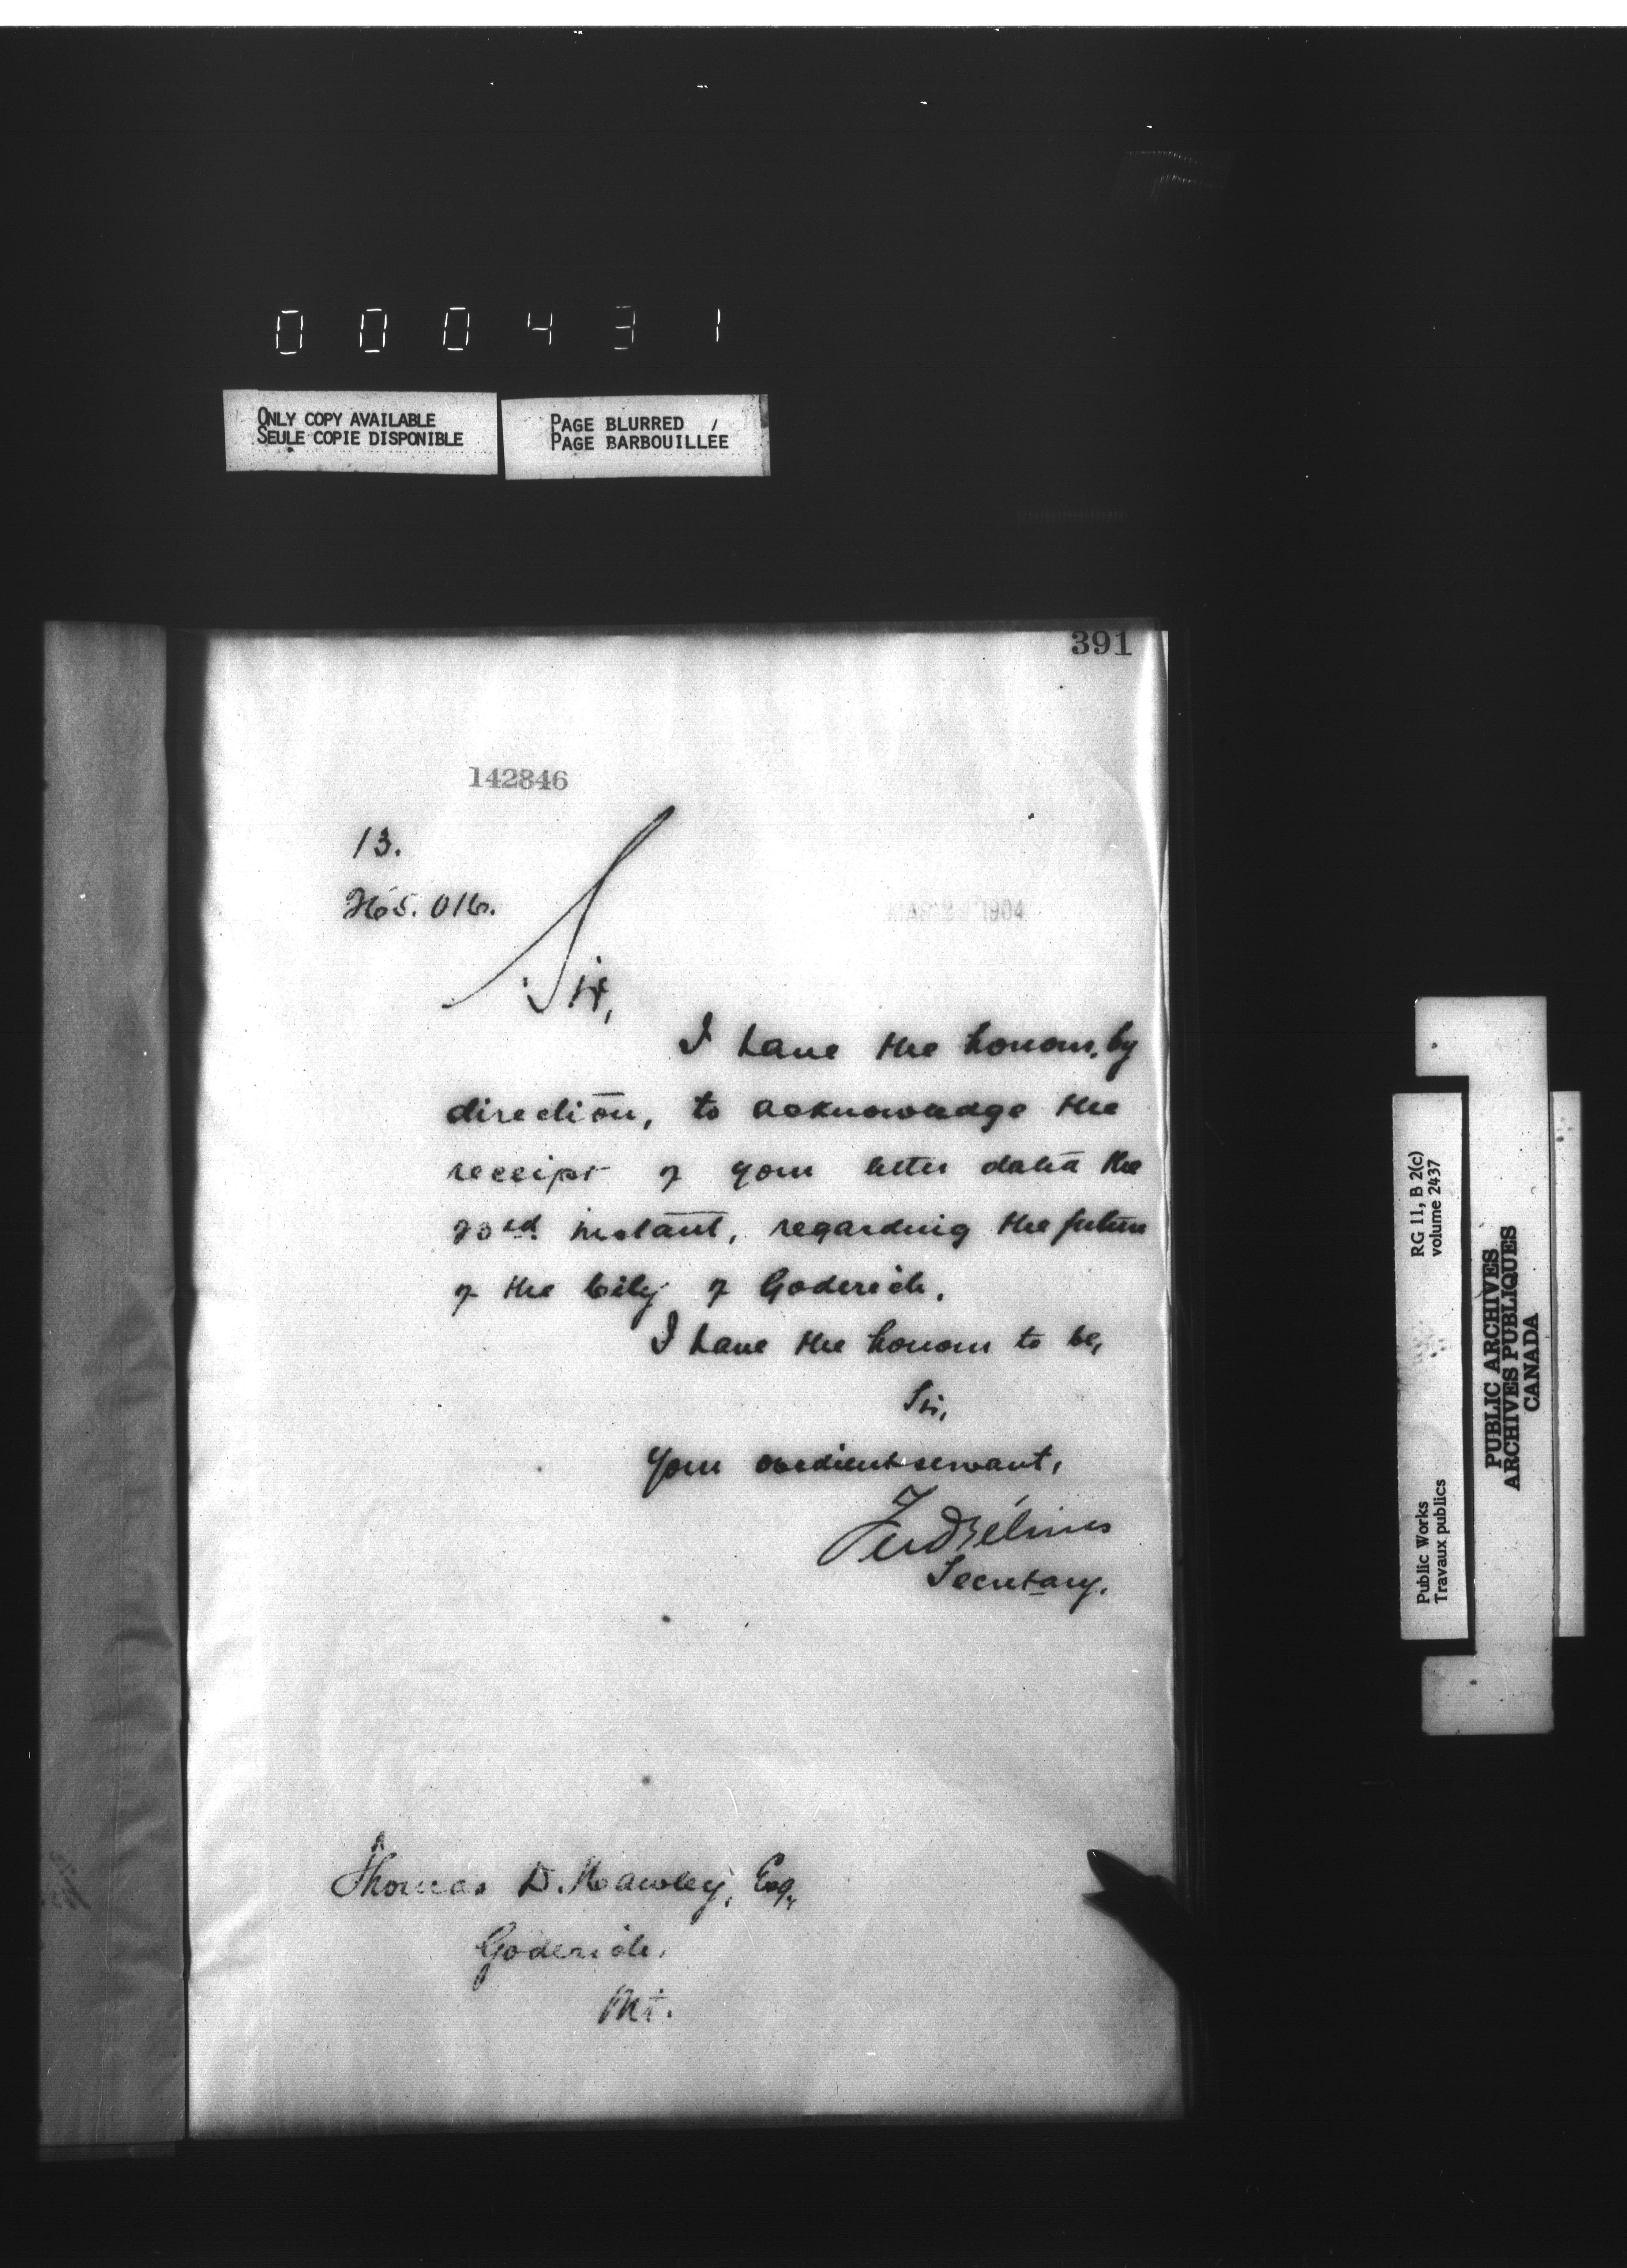 000431
ONLY COPY AVAILABLE
SEULE COPIE DISPONIBLE
PAGE BLURRED
PAGE BARBOUILLÉE
391
142846
13.
265.016.
1904
Sir,
I have the honour, by
direction, to acknowledge the
receipt of your letter dated the
23rd instant, regarding the future
of the City of Goderich.
I have the honour to be,
Sir,
Your obedient servant,
Secretary.
Thomas D. Hawley, Esq.,
Goderich,
Public Works
Travaux publics
RG 11, B 2(c)
volume 2437
PUBLIC ARCHIVES
ARCHIVES PUBLIQUES
CANADA